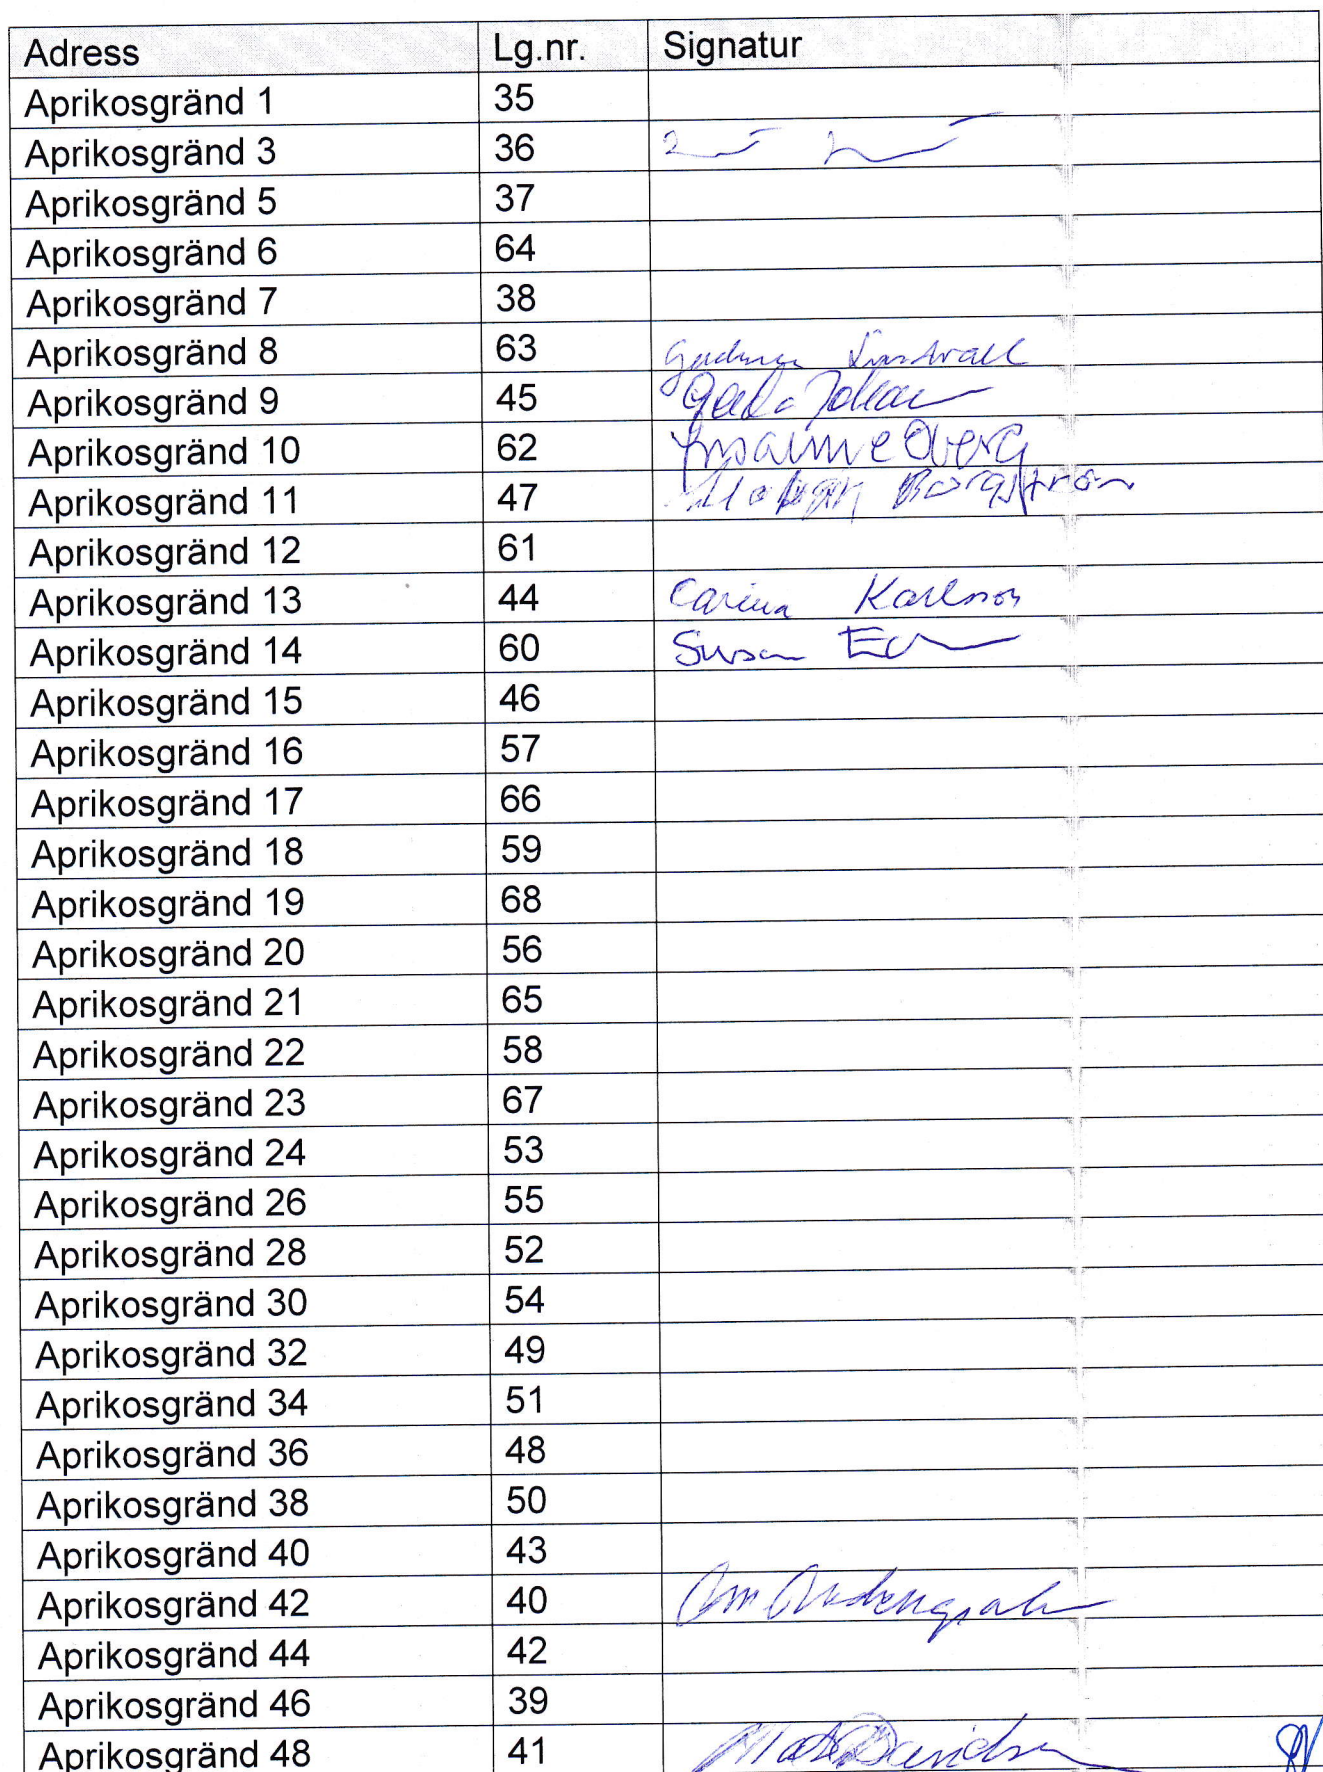 Adress Lg.nr. Signatur
Aprikosgränd 1 35
Aprikosgränd 3 36
Aprikosgränd 5 37
Aprikosgränd 6 64
Aprikosgränd 7 38
Aprikosgränd 8 63
Aprikosgränd 9 45
Aprikosgränd 10 62 Susanne Öberg
Aprikosgränd 11 47 Borgström
Aprikosgränd 12 61
Aprikosgränd 13 44 Carina Karlsson
Aprikosgränd 14 60 Susan
Aprikosgränd 15 46
Aprikosgränd 16 57
Aprikosgränd 17 66
Aprikosgränd 18 59
Aprikosgränd 19 68
Aprikosgränd 20 56
Aprikosgränd 21 65
Aprikosgränd 22 58
Aprikosgränd 23 67
Aprikosgränd 24 53
Aprikosgränd 26 55
Aprikosgränd 28 52
Aprikosgränd 30 54
Aprikosgränd 32 49
Aprikosgränd 34 51
Aprikosgränd 36 48
Aprikosgränd 38 50
Aprikosgränd 40 43
Aprikosgränd 42 40
Aprikosgränd 44 42
Aprikosgränd 46 39
Aprikosgränd 48 41 Mats Davidsson